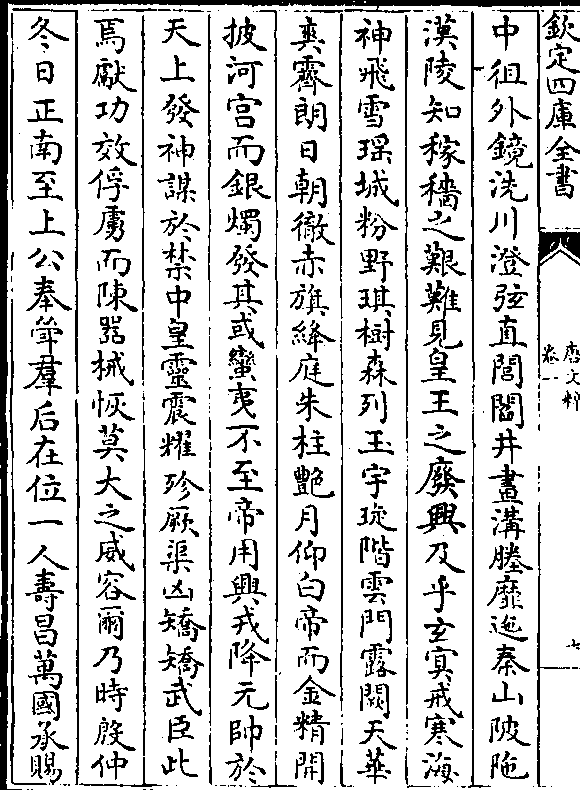 欽定四庫全書
唐文粹
卷一
七
中徂外鏡洗川澄弦直閭閻井畫溝塍靡迤秦山陂陁
漢陵知稼穡之艱難見皇王之廢興乃乎玄冥戒寒海
神飛雪瑤城粉野琪樹森列玉宇琁階雲門露闕天華
爽霽朗日朝徹赤旗絳庭朱柱艷月仰白帝而金精開
披河宫而銀燭發其或蠻夷不至帝用興戎降元帥於
天上發神謀於禁中皇靈震耀殄厥渠凶矯矯武臣此
焉獻功效俘虜而陳噐械恢莫大之威容爾乃時殷仲
冬日正南至上公奉斚羣后在位一人壽昌萬國承賜